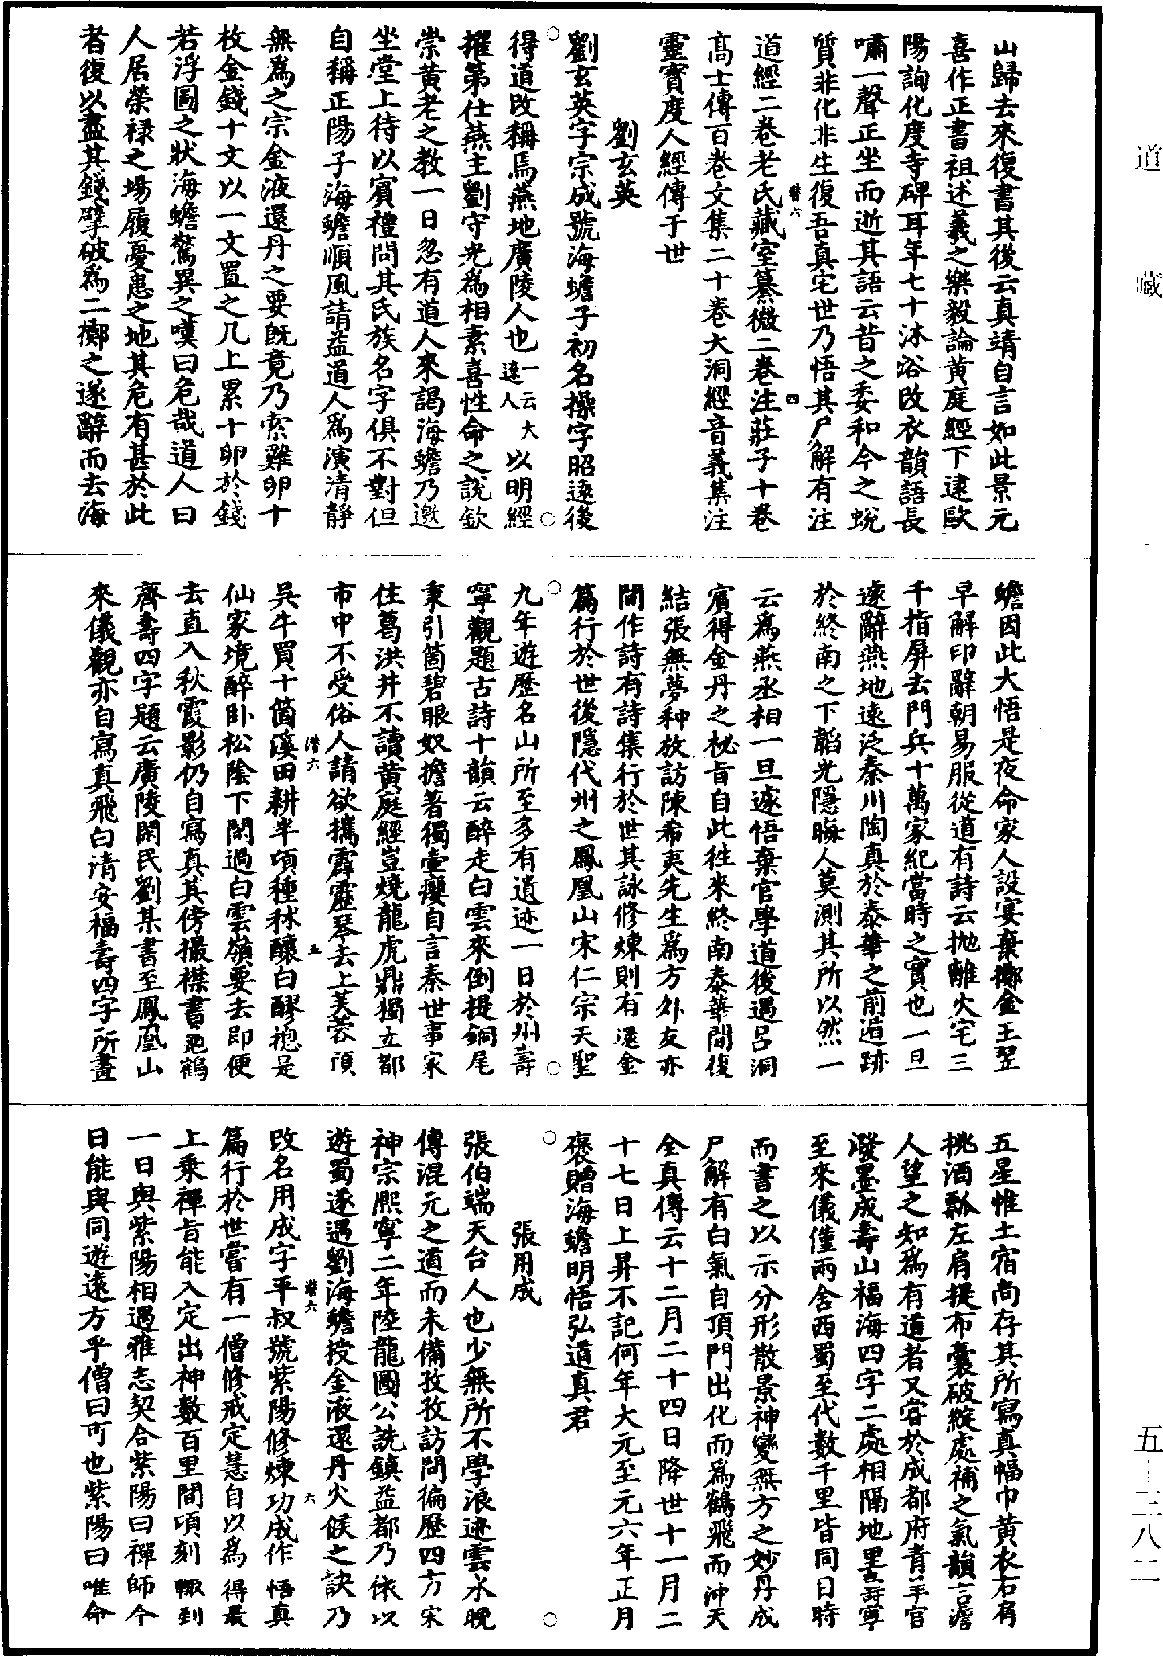 道藏
五—三八二
山歸去來復書其後云真靖自言如此景元
喜作正書祖述羲之樂毅論黃庭經下逮歐
陽詢化度寺碑耳年七十沐浴改衣韻語長
嘯一聲正坐而逝其語云昔之委和今之蛻
質非化非生復吾真宅世乃悟其尸解有注
道經二卷老氏藏室纂微二卷注莊子十卷
高士傳百卷文集二十卷大洞經音義集注
靈寶度人經傳于世
劉玄英
劉玄英字宗成號海蟾子初名操字昭遠後
得道改稱焉燕地廣陵人也一云大遼人以明經
擢第仕燕主劉守光為相素喜性命之說欽
崇黃老之教一日忽有道人來謁海蟾乃邀
坐堂上待以賓禮問其氏族名字俱不對但
自稱正陽子海蟾順風請益道人為演清靜
無為之宗金液還丹之要既竟乃索雞卵十
枚金錢十文以一文置之几上累十卵於錢
若浮圖之狀海蟾驚異之嘆曰危哉道人曰
人居榮祿之場履憂患之地其危有甚於此
者復以盡其錢擘破為二擲之遂辭而去海
蟾因此大悟是夜命家人設宴棄擲金玉翌
早解印辭朝易服從道有詩云拋離火宅三
千指屏去門兵十萬家紀當時之實也一旦
遠辭燕地遠泛秦川陶真於泰華之前遁跡
於終南之下韜光隱晦人莫測其所以然一
云為燕丞相一旦遽悟棄官學道後遇呂洞
賓得金丹之秘旨自此往來終南泰華間復
結張無夢种放訪陳希夷先生為方外友亦
間作詩有詩集行於世其詠修煉則有還金
篇行於世後隱代州之鳳凰山宋仁宗天聖
九年遊歷名山所至多有遺迹一日於州壽
寧觀題古詩十韻云醉走白雲來倒提銅尾
秉引箇碧眼奴擔著獨壺癭自言秦世事家
住葛洪井不讀黃庭經豈燒龍虎鼎獨立都
市中不受俗人請欲攜霹靂琴去上芙蓉頂
吳牛買十箇溪田耕半頃種秫釀白醪總是
仙家境醉臥松陰下閑過白雲嶺要去即便
去直入秋霞影仍自寫真其傍撮襟書龜鶴
齊壽四字題云廣陵閑民劉某書至鳳凰山
來儀觀亦自寫真飛白清安福壽四字所畫
五星惟土宿尚存其所寫真幅巾黃衣右肩
挑酒瓢左肩提布囊破綻處補之氣韻言澹
人望之知為有道者又嘗於成都府青羊宮
潑墨成壽山福海四字二處相隔地里壽寧
至來儀僅兩舍西蜀至代數千里皆同日時
而書之以示分形散景神變無方之妙丹成
尸解有白氣自頂門出化而為鶴飛而沖天
全真傳云十二月二十四日降世十一月二
十七日上昇不記何年大元至元六年正月
褒贈海蟾明悟弘道真君
張用成
張伯端天台人也少無所不學浪迹雲水晚
傳混元之道而未備孜孜訪問徧歷四方宋
神宗熙寧二年陸龍圖公詵鎮益都乃依以
遊蜀遂遇劉海蟾授金液還丹火候之訣乃
改名用成字平叔號紫陽修煉功成作悟真
篇行於世嘗有一僧修戒定慧自以為得最
上乘禪旨能入定出神數百里間頃刻輒到
一日與紫陽相遇雅志契合紫陽曰禪師今
日能與同遊遠方乎僧曰可也紫陽曰唯命